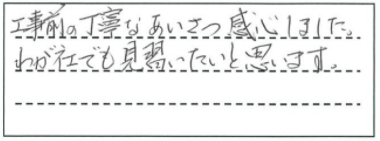 工事前の丁寧なあいさつ感心しました。
わが社でも見習いたいと思います。